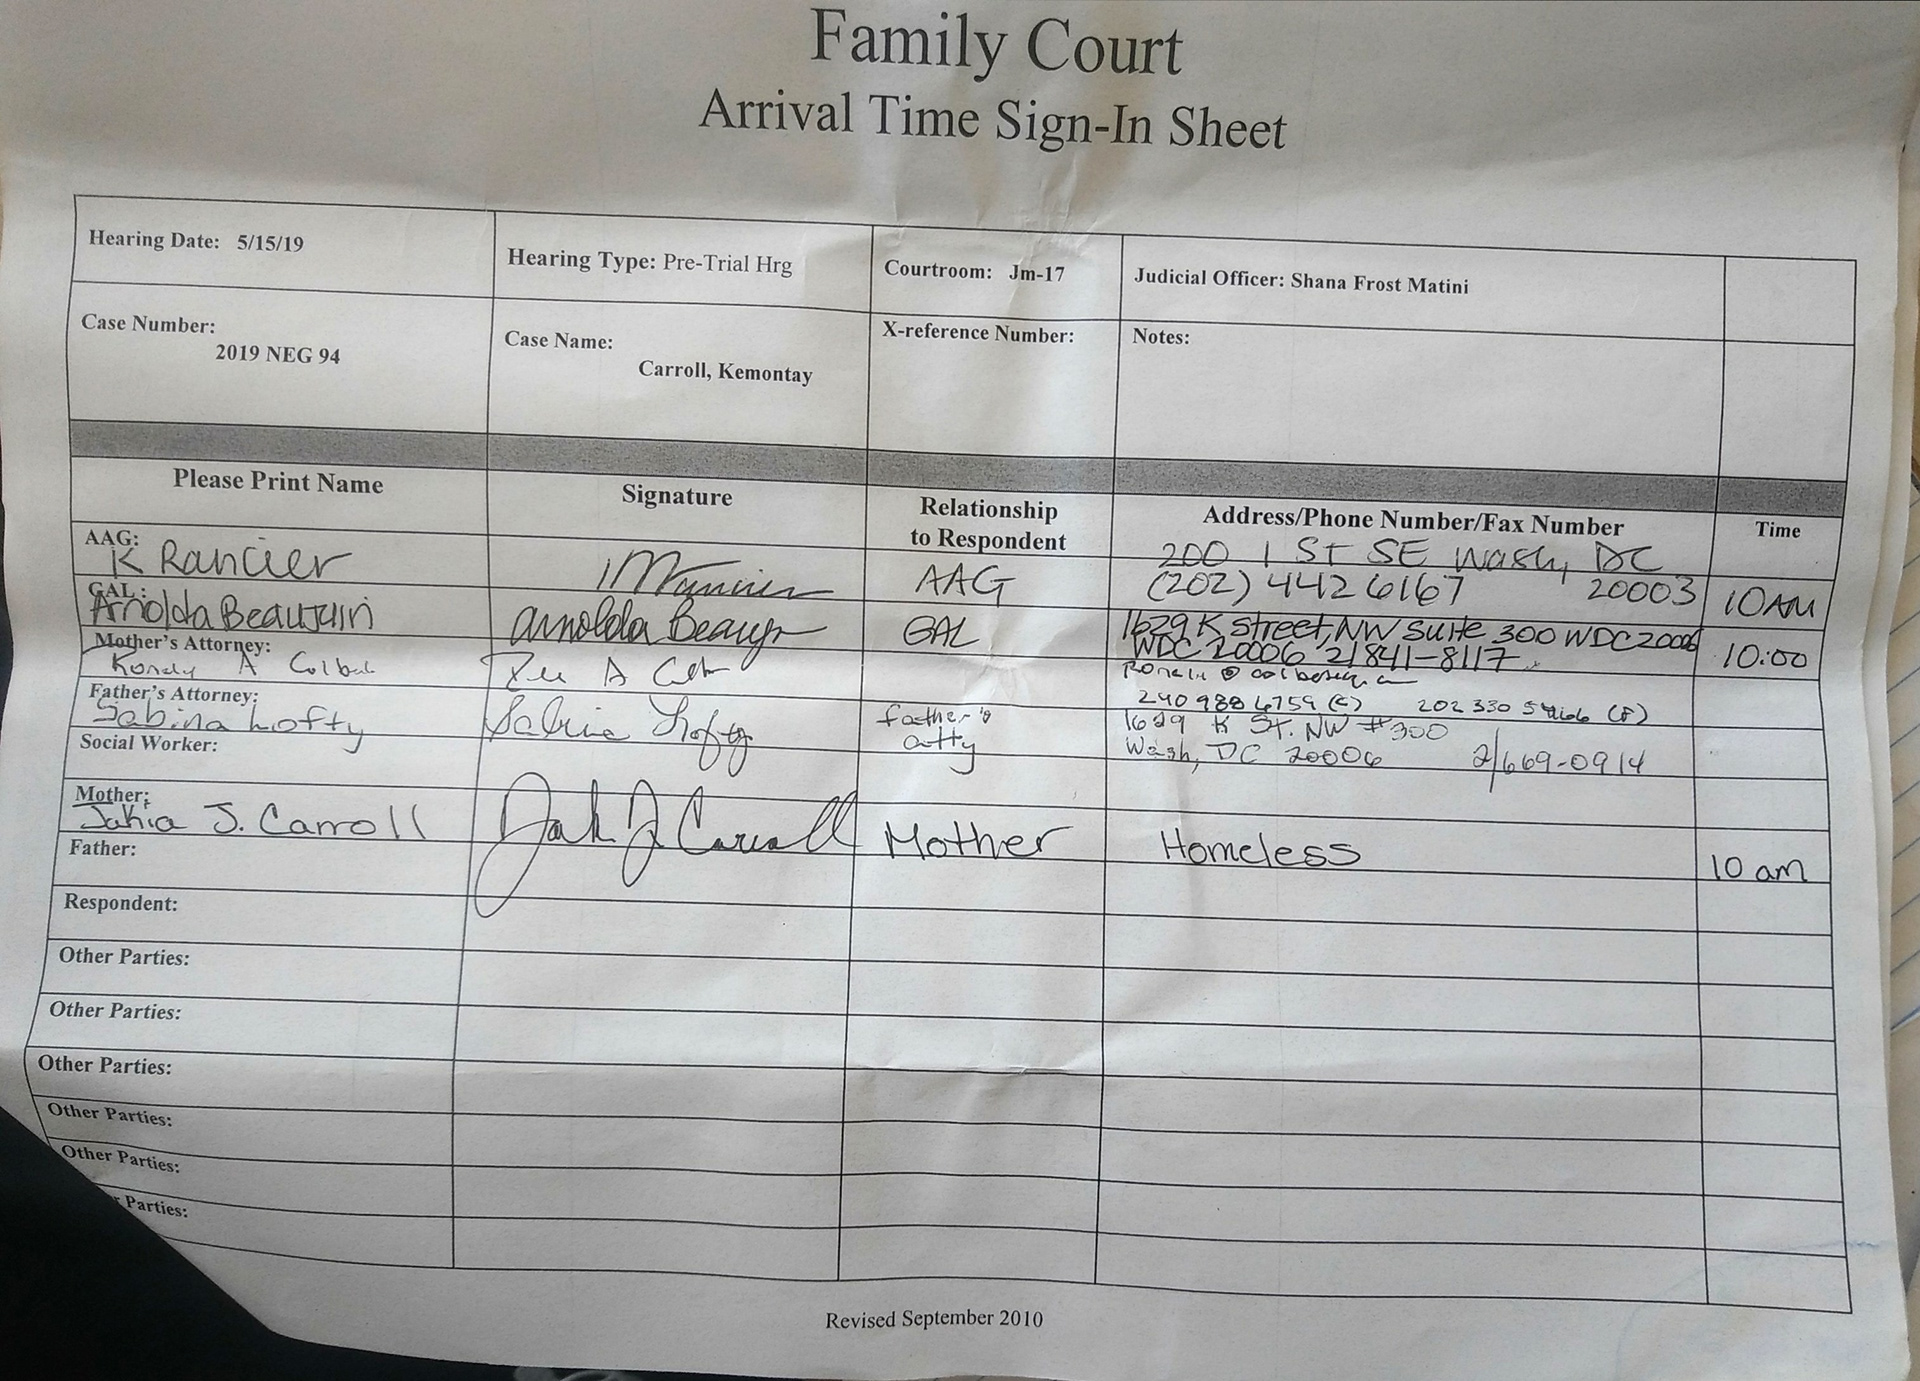 Family Court
Arrival Time Sign-In Sheet
Hearing Date: 5/15/19
Hearing Type: Pre-Trial Hrg
Courtroom: Jm-17
Judicial Officer: Shana Frost Matini
Case Number:
2019 NEG 94
Case Name:
Carroll, Kemontay
X-reference Number:
Notes:
Please Print Name
Signature
Relationship
to Respondent
Address/Phone Number/Fax Number
Time
AAG:
K Rancier
AAG
200 I ST SE Wash, DC
(202) 442 6167 20003
10AM
GAL:
Arnolda Beaujuin
Arnolda
GAL
1629 K Street, NW Suite 300 WDC 20006
WDC 20006 2/841-8117
10:00
Mother's Attorney:
A
A
240 988 6759 (C) 202 330 (F)
Father's Attorney:
Sabina Lofty
Sabina Lofty
father's
atty
1629 K St. NW #300
Wash, DC 20006 2/669-0914
Social Worker:
Mother:
Jakia J. Carroll
J Carroll
Mother
Homeless
10 am
Father:
Respondent:
Other Parties:
Other Parties:
Other Parties:
Other Parties:
Other Parties:
Parties:
Revised September 2010